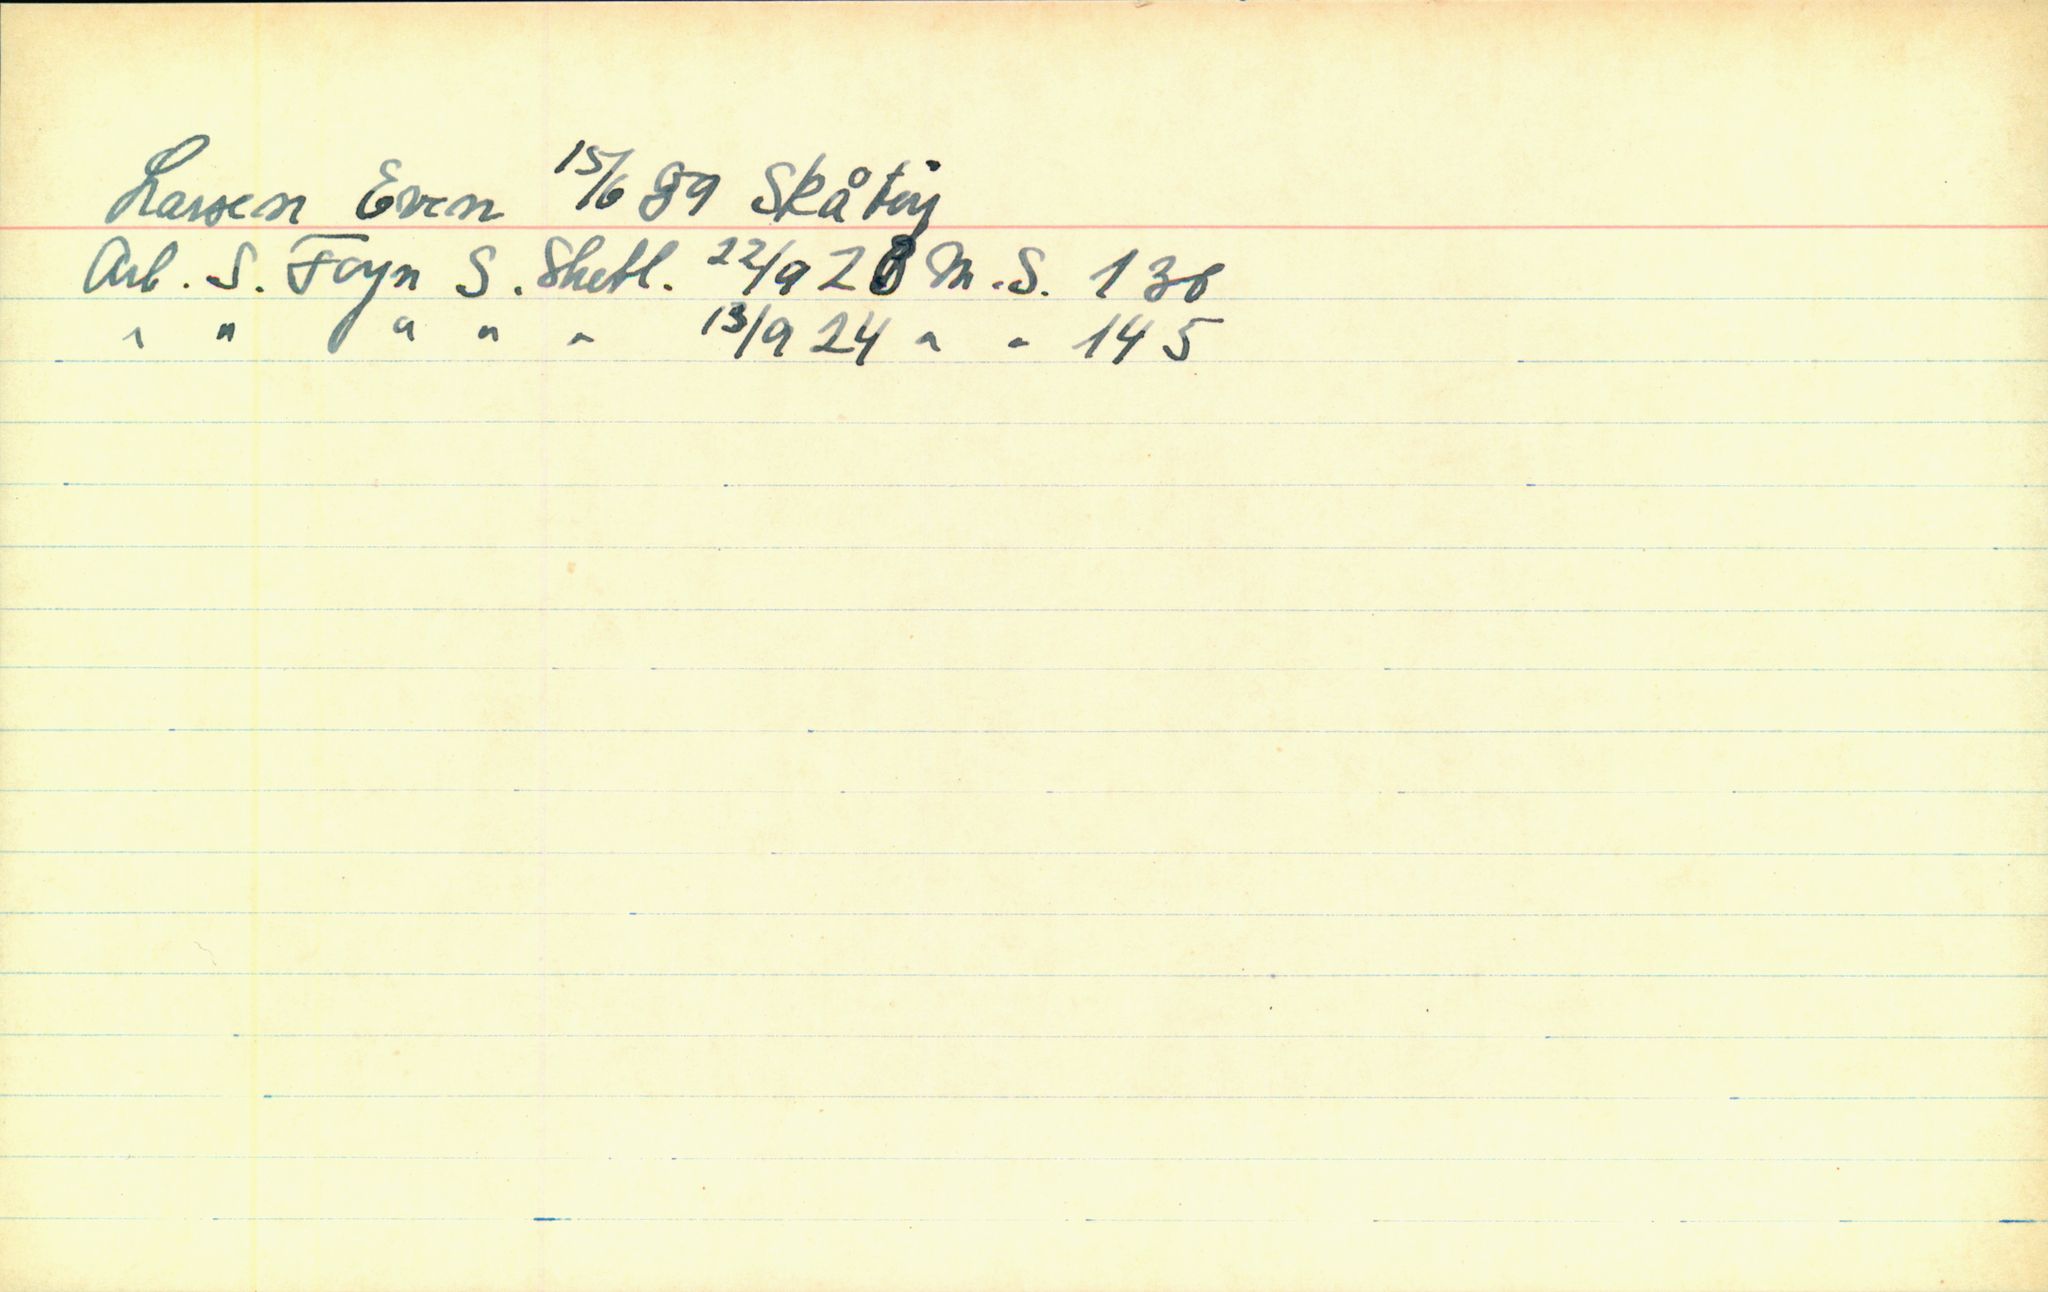 Larsen Even 15/6 89 Skåtøy
Arb. S. Foyn S. Shetl. 22/9 23 M.S. 130
" " " " " 13/9 24 " " 145